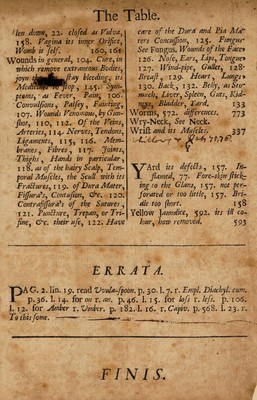 The Table.
len down, 22. closed as Vulva,
158. Vagina its inner Orifice,
Womb it self. 160, 161
Wounds in general, 104. Cure, in
which remove extraneous Bodies,
joyn stay bleeding, its
Medicines to stop, 145. Sym-
ptoms, as Fever, Pain, 106
Convulsions, Palsey, Fainting,
107. Wounds Venomous, by Gun-
shot, 110, 112. Of the Veins,
Arteries, 114. Nerves, Tendons,
Ligaments, 115, 116. Mem-
branes, Fibres, 117. Joints,
Thighs, Hands in particular,
118. as of the hairy Scalp, Tem-
poral Muscles, the Scull with its
Fractures, 119. of Dura Mater,
Fissura's, Contusion, &c. 120.
Contrafissura's of the Sutures,
121. Puncture, Trepan, or Tri-
fine, &c. their use, 122. Have
care of the Dura and Pia Ma-
ters Concussion, 125. Fungus
See Fungus. Wounds of the Face,
126. Nose, Ears, Lips, Tongue
127. Wind-pipe, Gullet, 128.
Breast, 129. Heart, Lungs,
130. Back, 132. Belly, as Sto-
mach, Liver, Spleen, Guts, Kid-
neys, Bladder, Yard. 133
Worms, 572. differences. 773
Wry-Neck, See Neck.
Wrist and its Muscles. 337
YArd its defects, 157. In-
flamed, 77. Fore-skin stick-
ing to the Glans, 157. not per-
forated or too little, 157. Bri-
dle too short. 158
Yellow Jaundice, 592. its ill co-
lour, how removed. 593
ERRATA.
PAG. 2. lin. 19. read Uvula-spoon. p. 30. l. 7. r. Empl. Diachyl. cum.
p. 36. l. 14. for on r. an. p. 46. l. 15. for loss r. less. p. 106.
l. 12. for Amber r. Umber. p. 182. l. 16. r. Capiv. p. 568. l. 23. r.
To this some.
FINIS.